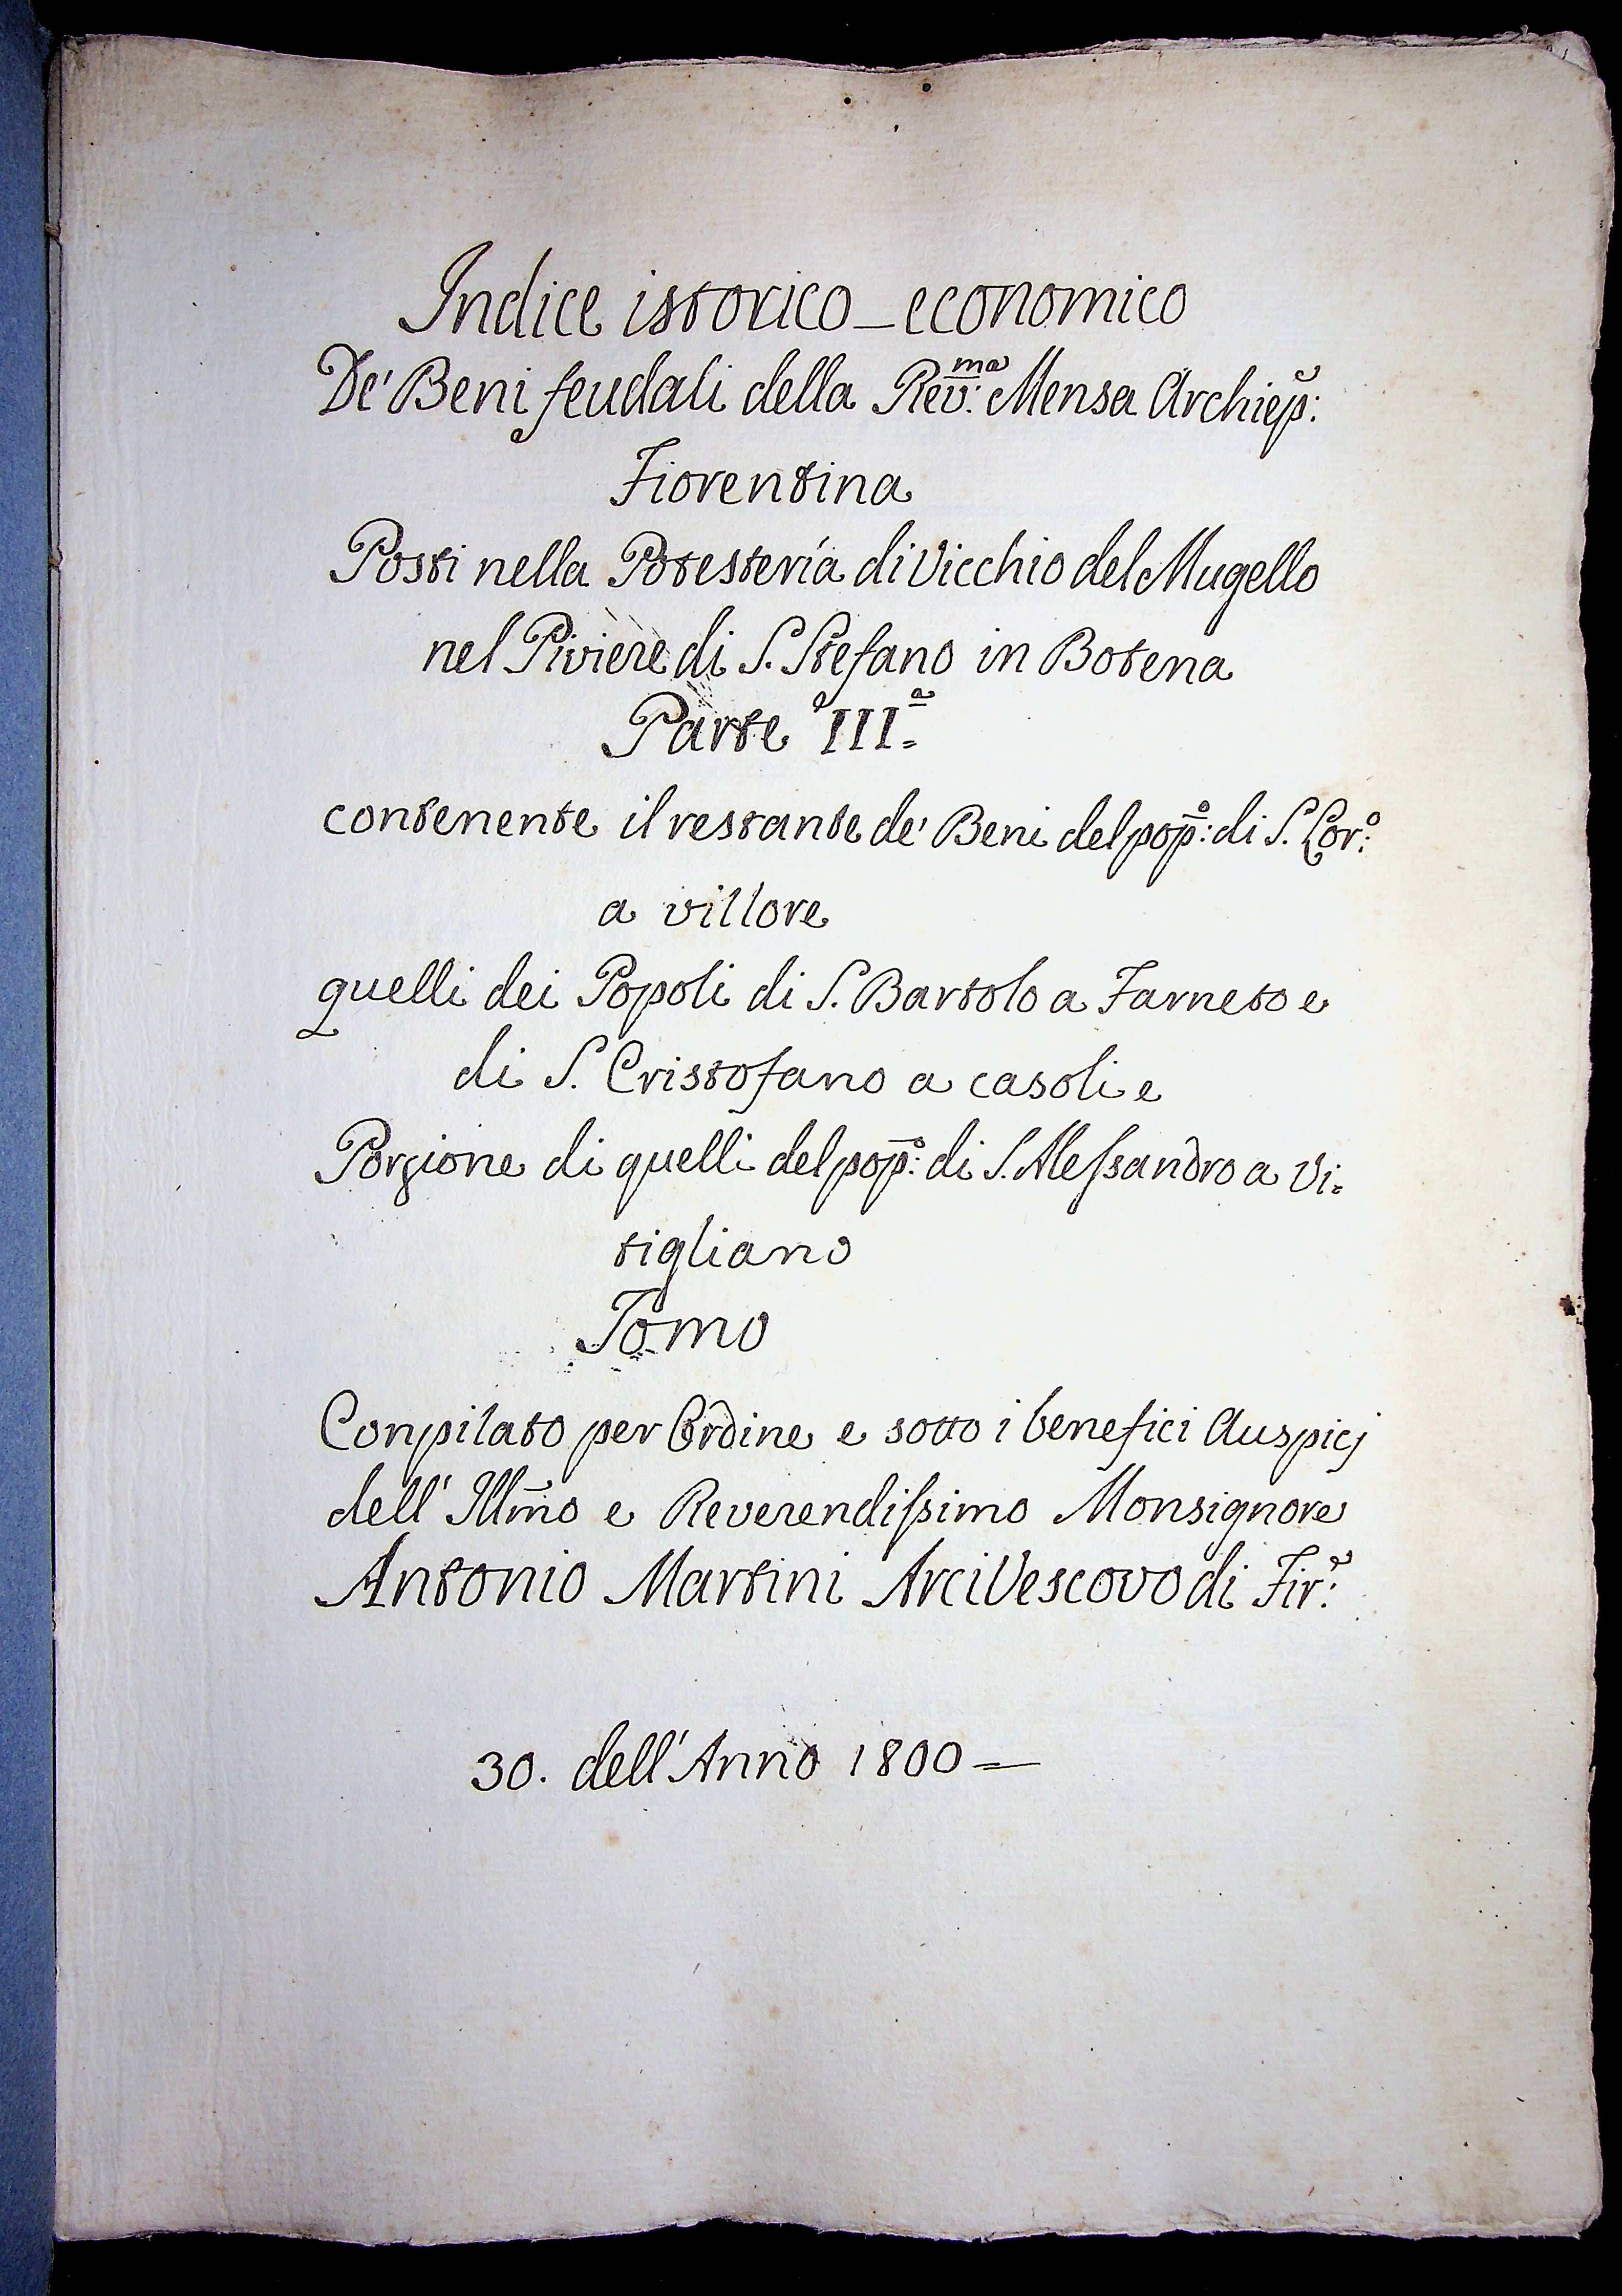 Indice istorico_economico
De' Beni feudali della Rev:ma Mensa Archiep:
Fiorentina
Posti nella Potestería di Vicchio del Mugello
nel Piviere di S. Stefano in Botena
Parte IIIa=
contenente il restante de' Beni del pop:o di S. Lor:o
a villore
quelli dei Popoli di S. Bartolo a Farneto e
di S. Cristofano a casoli e
Porzione di quelli del pop:o di S. Alessandro a Vi=
tigliano
Tomo
Conpilato per Ordine e sotto i benefici Auspicj
dell' Illmõ e Reverendissimo Monsignore
Antonio Martini ArciVescovo di Fir:e
30. dell' Anno 1800=